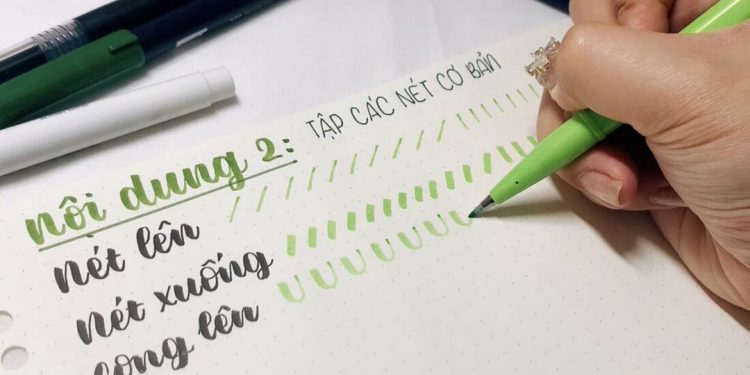 nội dung 2: TẬP CÁC NÉT CƠ BẢN
Nét lên
Nét xuống
Cong lên